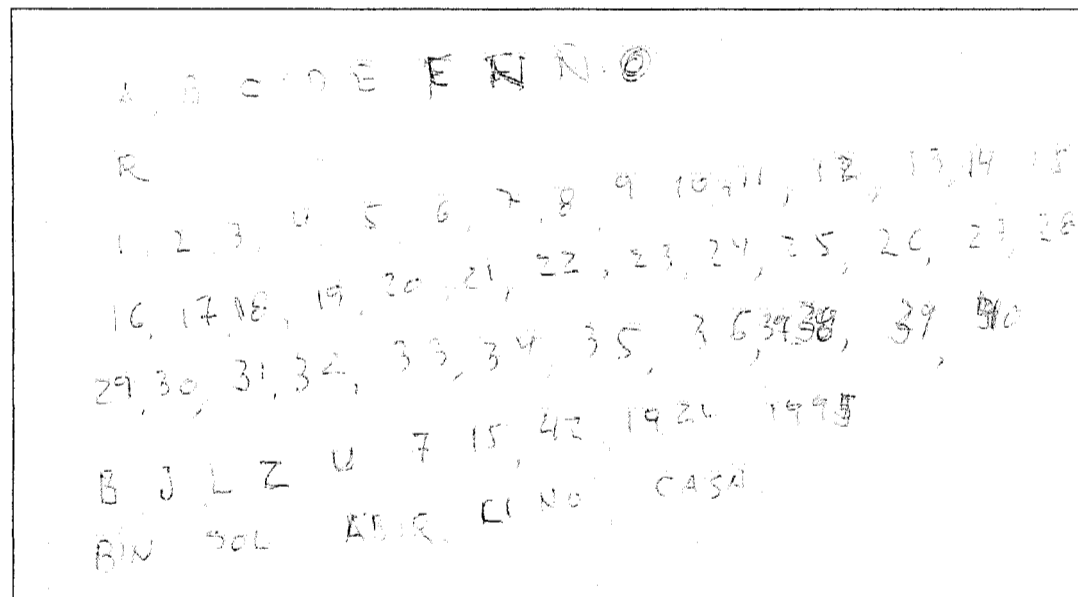 A, B C D E F N Ñ O
R
1, 2, 3, 4, 5, 6, 7, 8, 9 10, 11, 12, 13, 14 15
16, 17, 18, 19, 20, 21, 22, 23, 24, 25, 26, 27, 28
29, 30, 31, 32, 33, 34, 35, 36, 39, 40
B J L Z U 7 15, 42, 192 1995
BIN SOL CASA